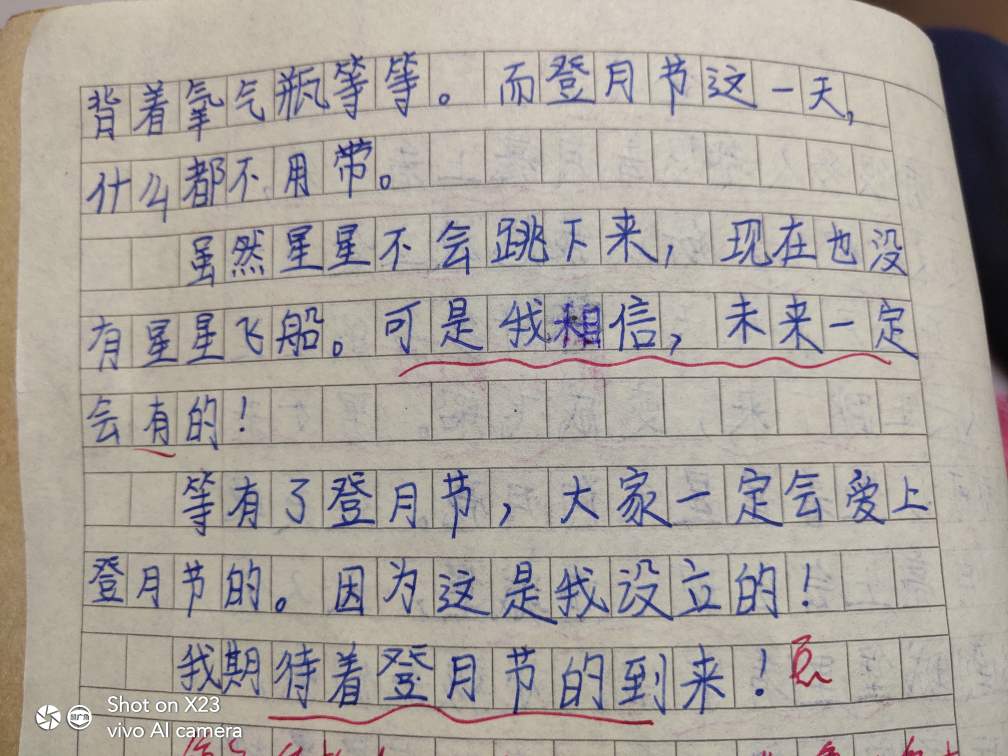 背着氧气瓶等等。而登月节这一天，
什么都不用带。
虽然星星不会跳下来，现在也没
有星星飞船。可是我相信，未来一定
会有的！
等有了登月节，大家一定会爱上
登月节的。因为这是我设立的！
我期待着登月节的到来！
Shot on X23
vivo AI camera